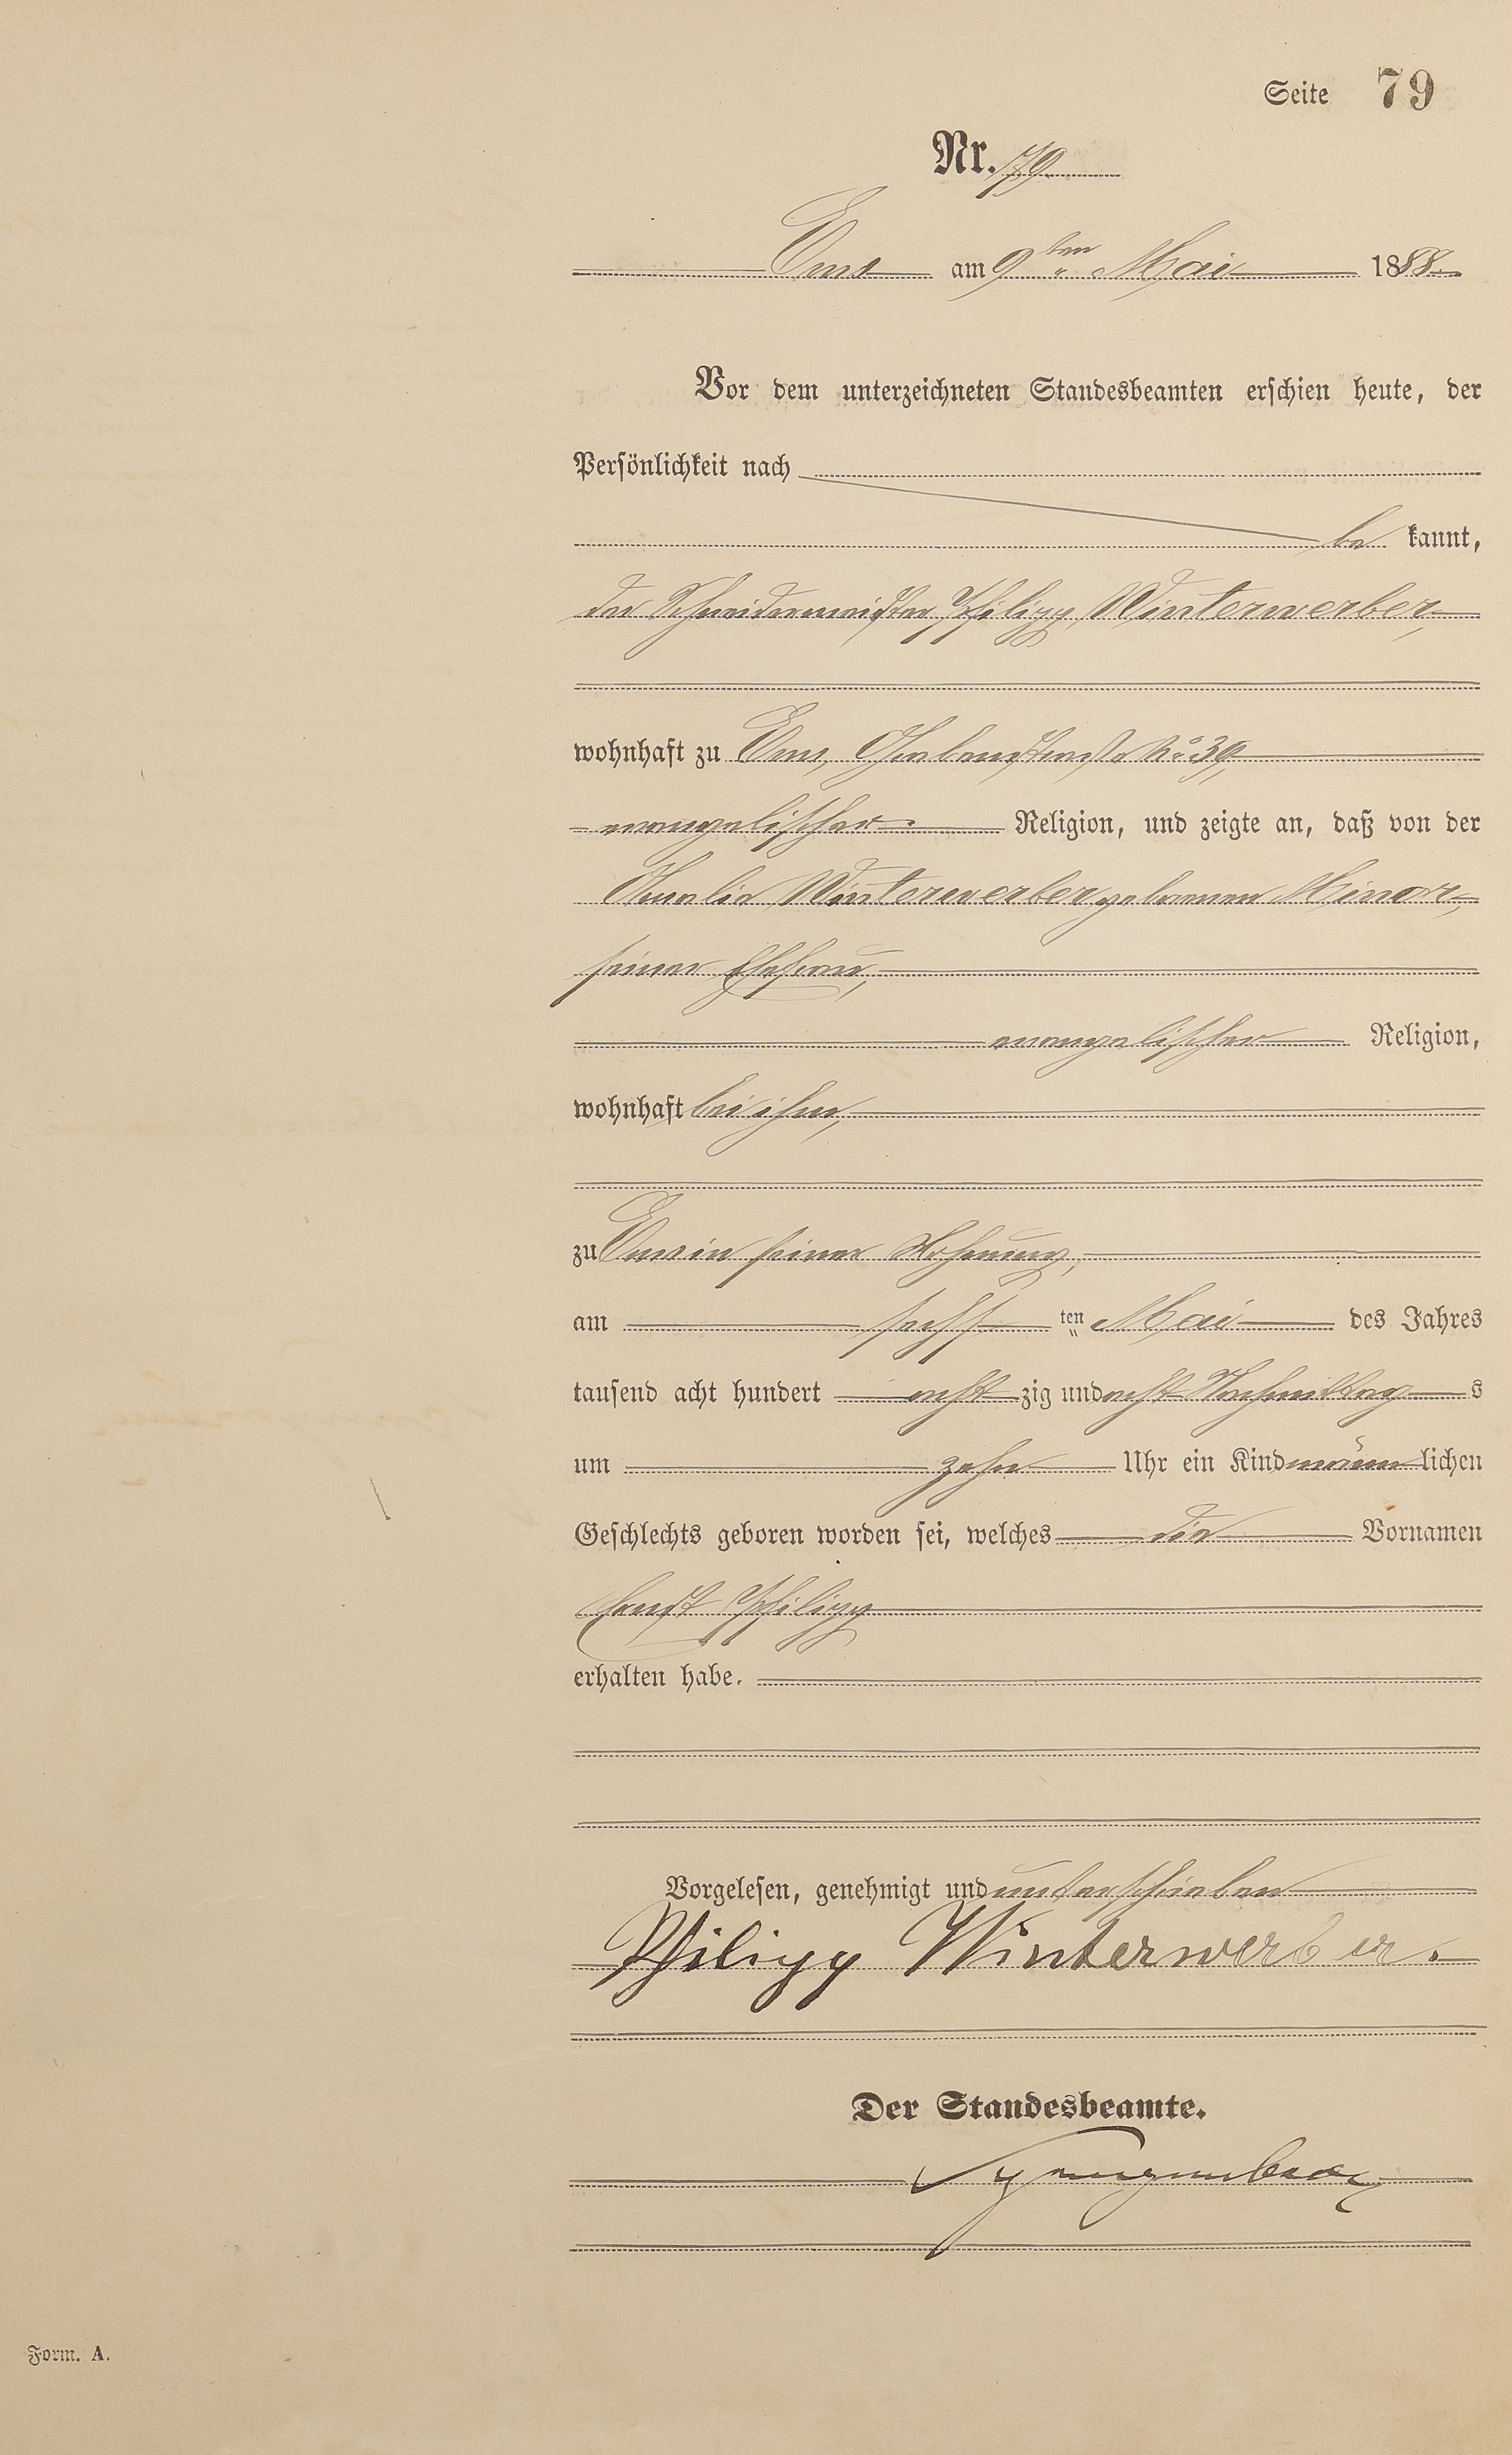 Seite 79
Nr. 79
Ems am 9ten Mai 1888.
Vor dem unterzeichneten Standesbeamten erschien heute, der
Persönlichkeit nach
be kannt,
der Schneidermeister Philipp Winterwerber,
wohnhaft zu Ems, No 39,
evangelischer Religion, und zeigte an, daß von der
Amalie Winterwerber geborenen Minor,
seiner Ehefrau,
evangelischer Religion,
wohnhaft bei ihm,
zu Ems in seiner Wohnung,
am sechs ten Mai des Jahres
tausend acht hundert acht zig und acht Nachmittag s
um zehn Uhr ein Kind männ lichen
Geschlechts geboren worden sei, welches die Vornamen
Ernst Philipp
erhalten habe.
Vorgelesen, genehmigt und unterschrieben
Philipp Winterwerber.
Der Standesbeamte.
Form. A.